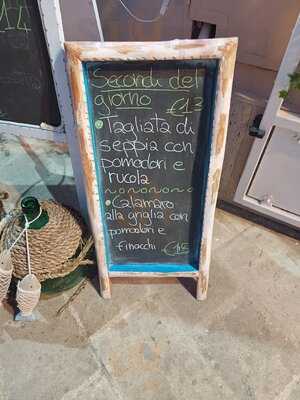 Secondi del
giorno €13
• Tagliata di
seppia con
pomodori e
rucola
• Calamaro
alla griglia con
pomodori e
finocchi